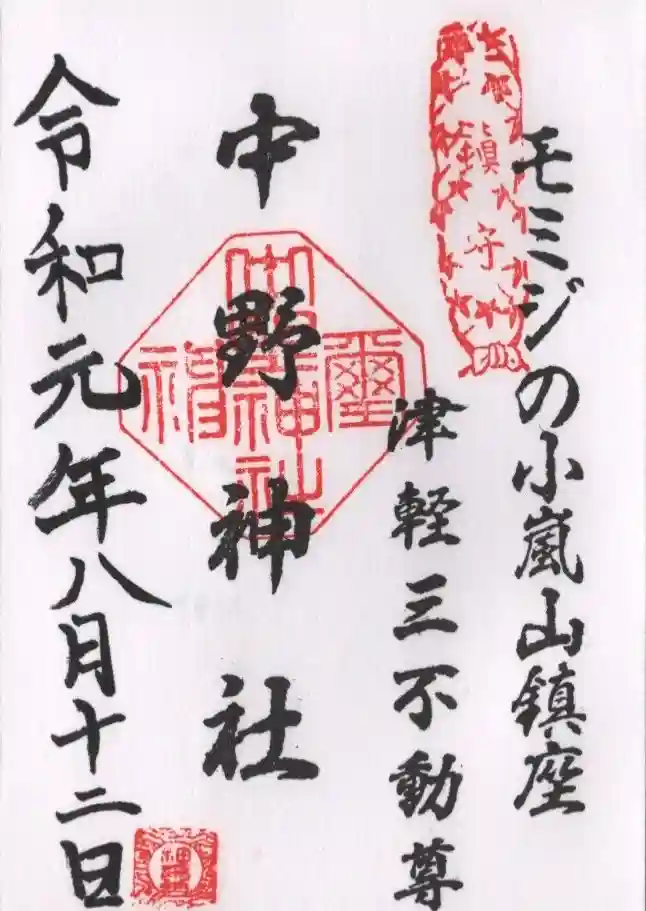 モミジの小嵐山鎮座
鎮守
津軽三不動尊
中野神社
中野神社
令和元年八月十二日